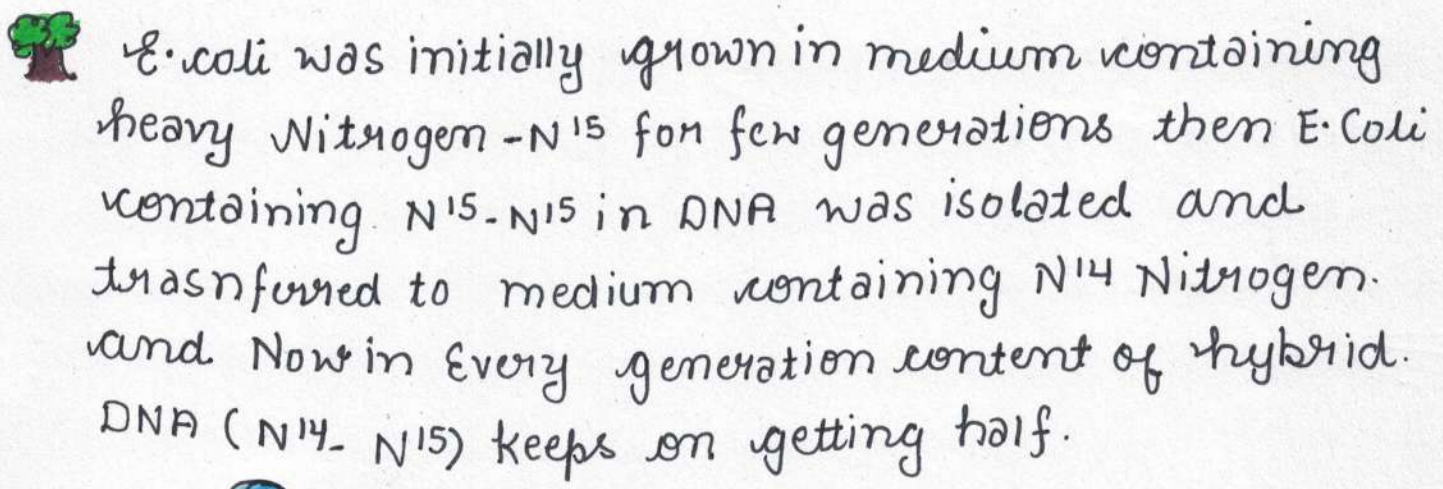 E.coli was initially grown in medium containing
heavy Nitrogen - N15 for few generations then E.Coli
containing N15-N15 in DNA was isolated and
trasnferred to medium containing N14 Nitrogen.
and. Now in Every generation content of hybrid.
DNA (N14- N15) keeps on getting half.